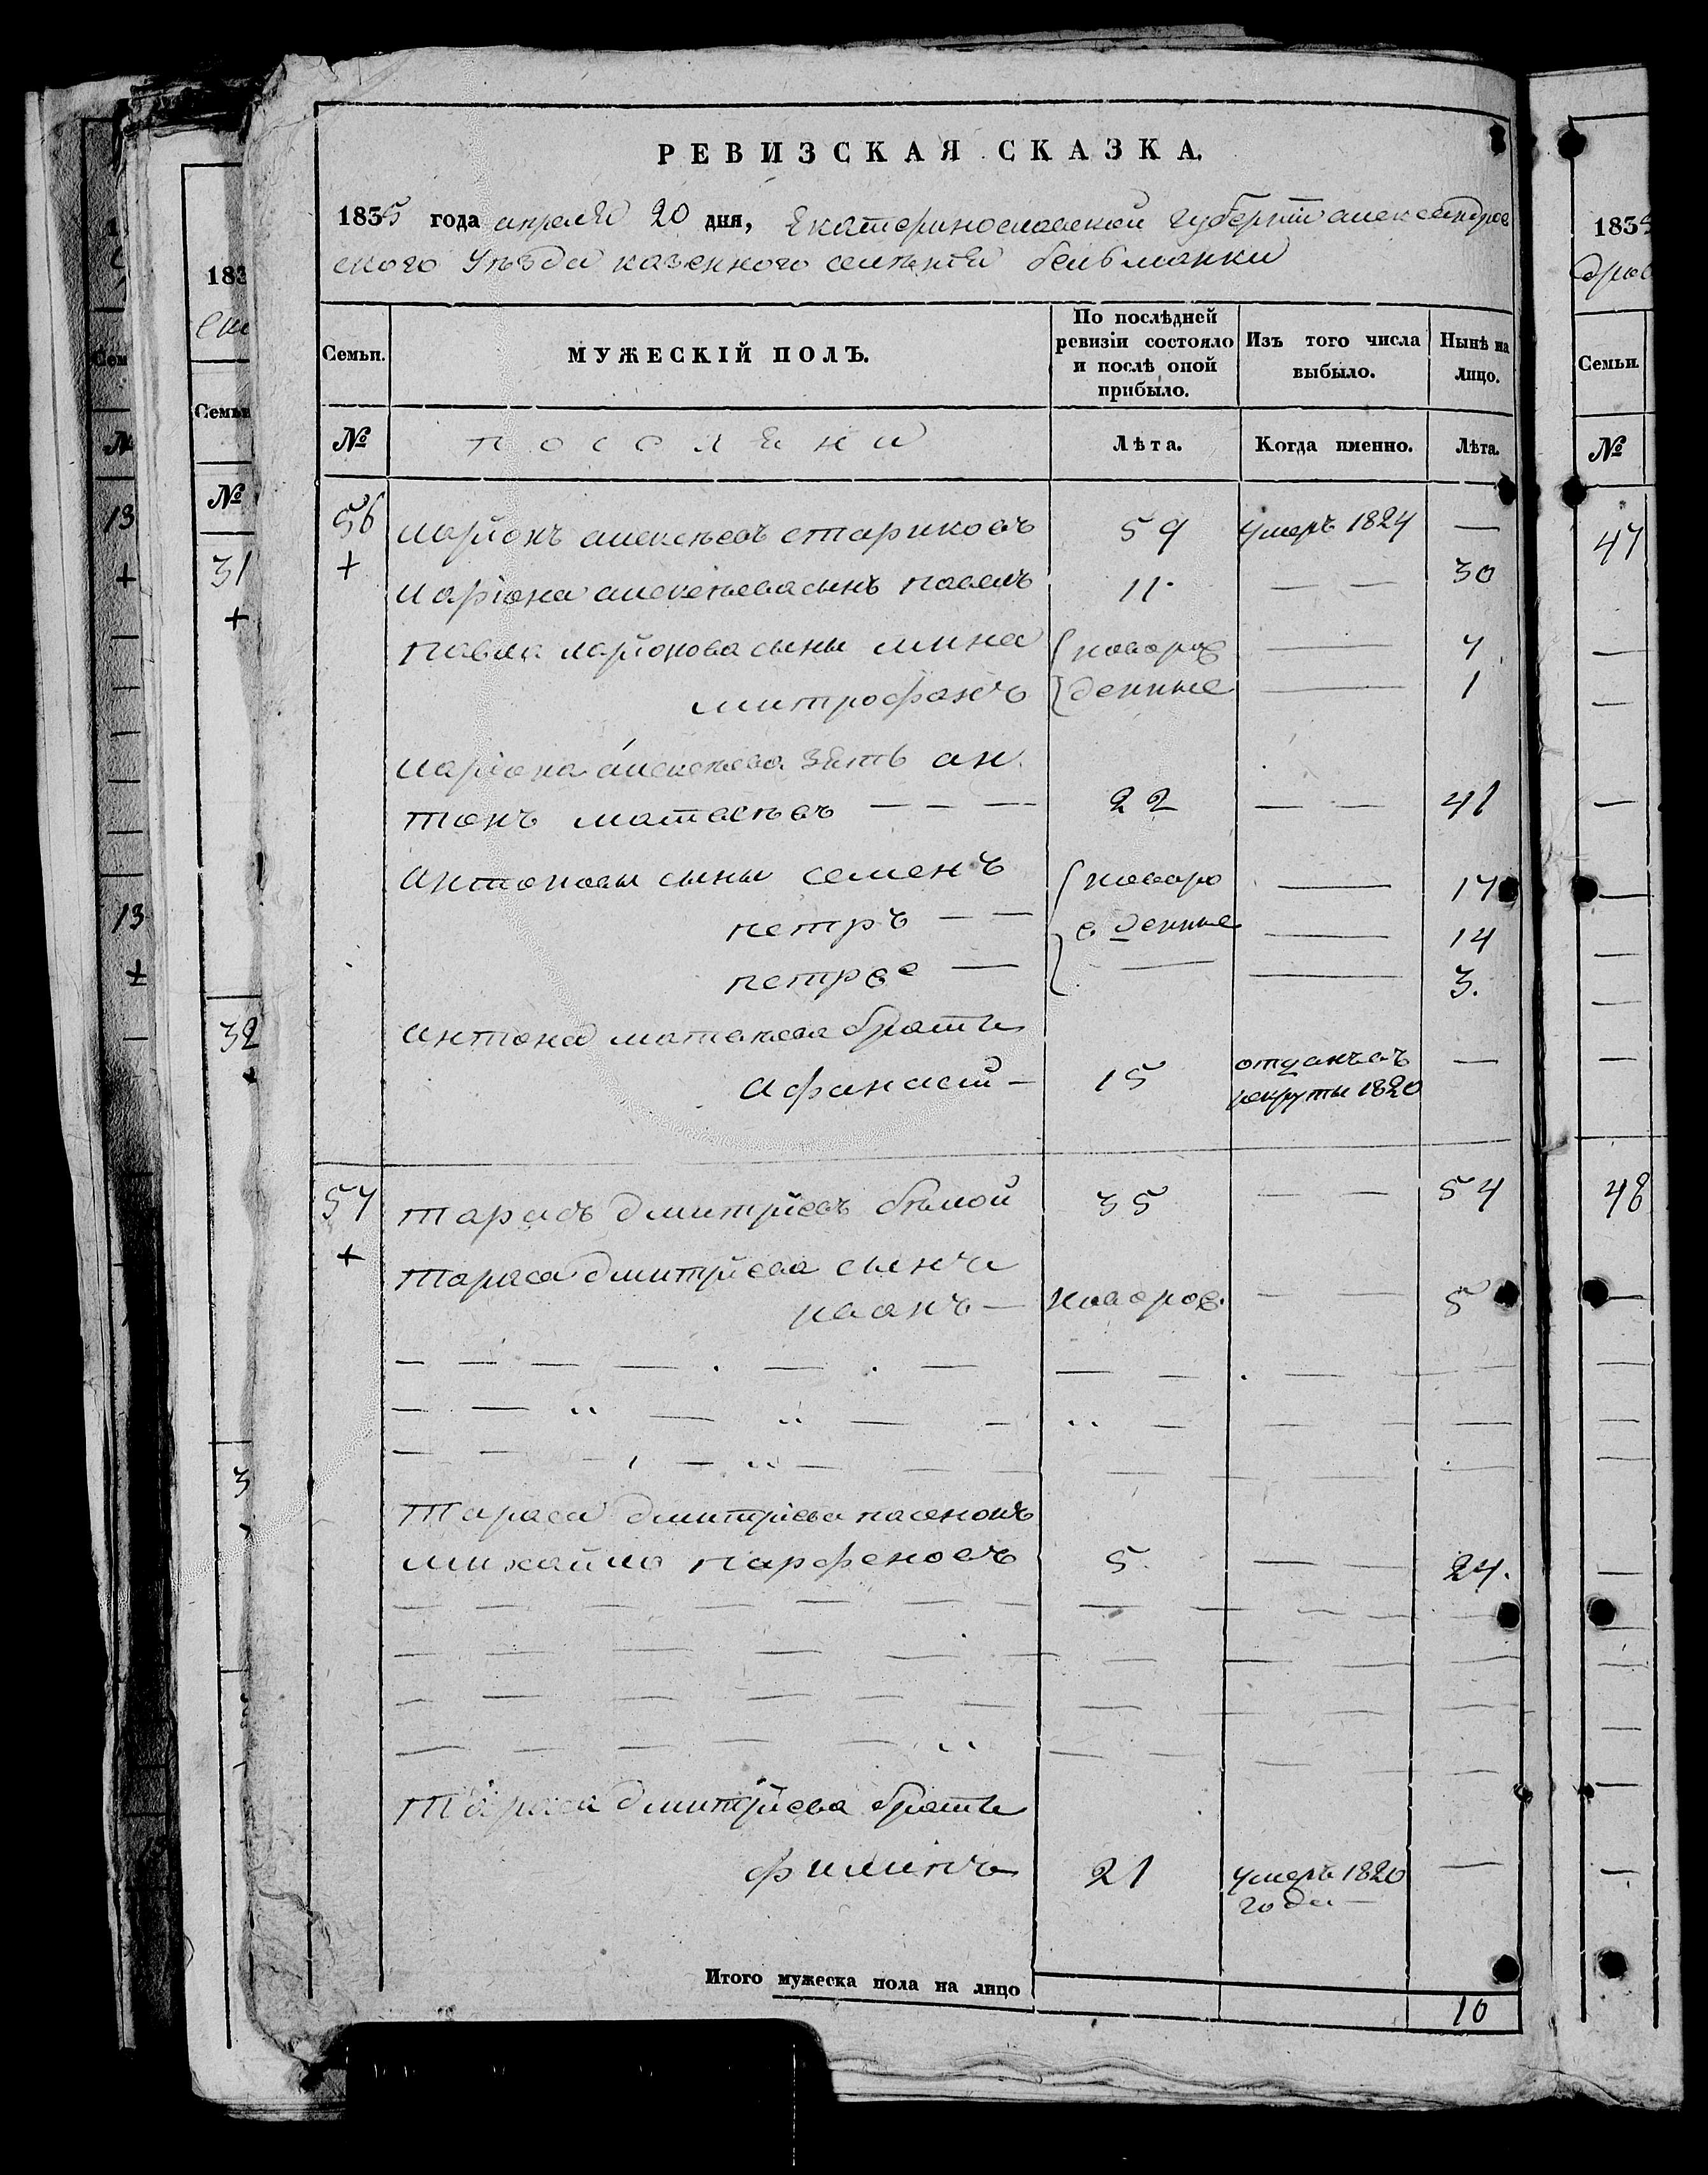 РЕВИЗСКАЯ СКАЗКА.
1835 года апреля 20 дня, Екатеринославской губернии александров
ского уезда казенного селения бельманки
Семьи.
МУЖЕСКІЙ ПОЛЪ.
По послѣдней ревизіи состояло и послѣ оной прибыло.
Изъ того числа выбыло.
Нынѣ на лицо.
№ поселяни Лѣта. Когда именно. Лѣта.
56 ларионъ алексѣевъ стариковъ 59 умеръ 1824 —
+ лариона алексѣева сынъ павелъ 11 — — 30
павла ларионова сыны мина { новорож — 7
митрофанъ } денные — 1
лариона алексѣева зять ан
тонъ матвѣевъ — — — 22 — — 41
антоновы сыны семенъ { новоро — 17
петръ — — жденные — 14
петръ же — — — 3.
антона матвѣева братъ
афанасий — 15 отданъ въ —
рекруты 1820
57 тарасъ дмитриевъ бѣлой 35 — — 54
+ тараса дмитриева сынъ
иванъ — новорож. — — 5
тараса дмитриева пасенокъ
михайло парфеновъ 5 — — 24.
тараса дмитриева братъ
филипъ 21 умеръ 1820 —
года —
Итого мужеска пола на лицо 10
183
Семьи
№
31
+
32
3
13
+
13
+
1835
дров
Семьи.
№
47
48